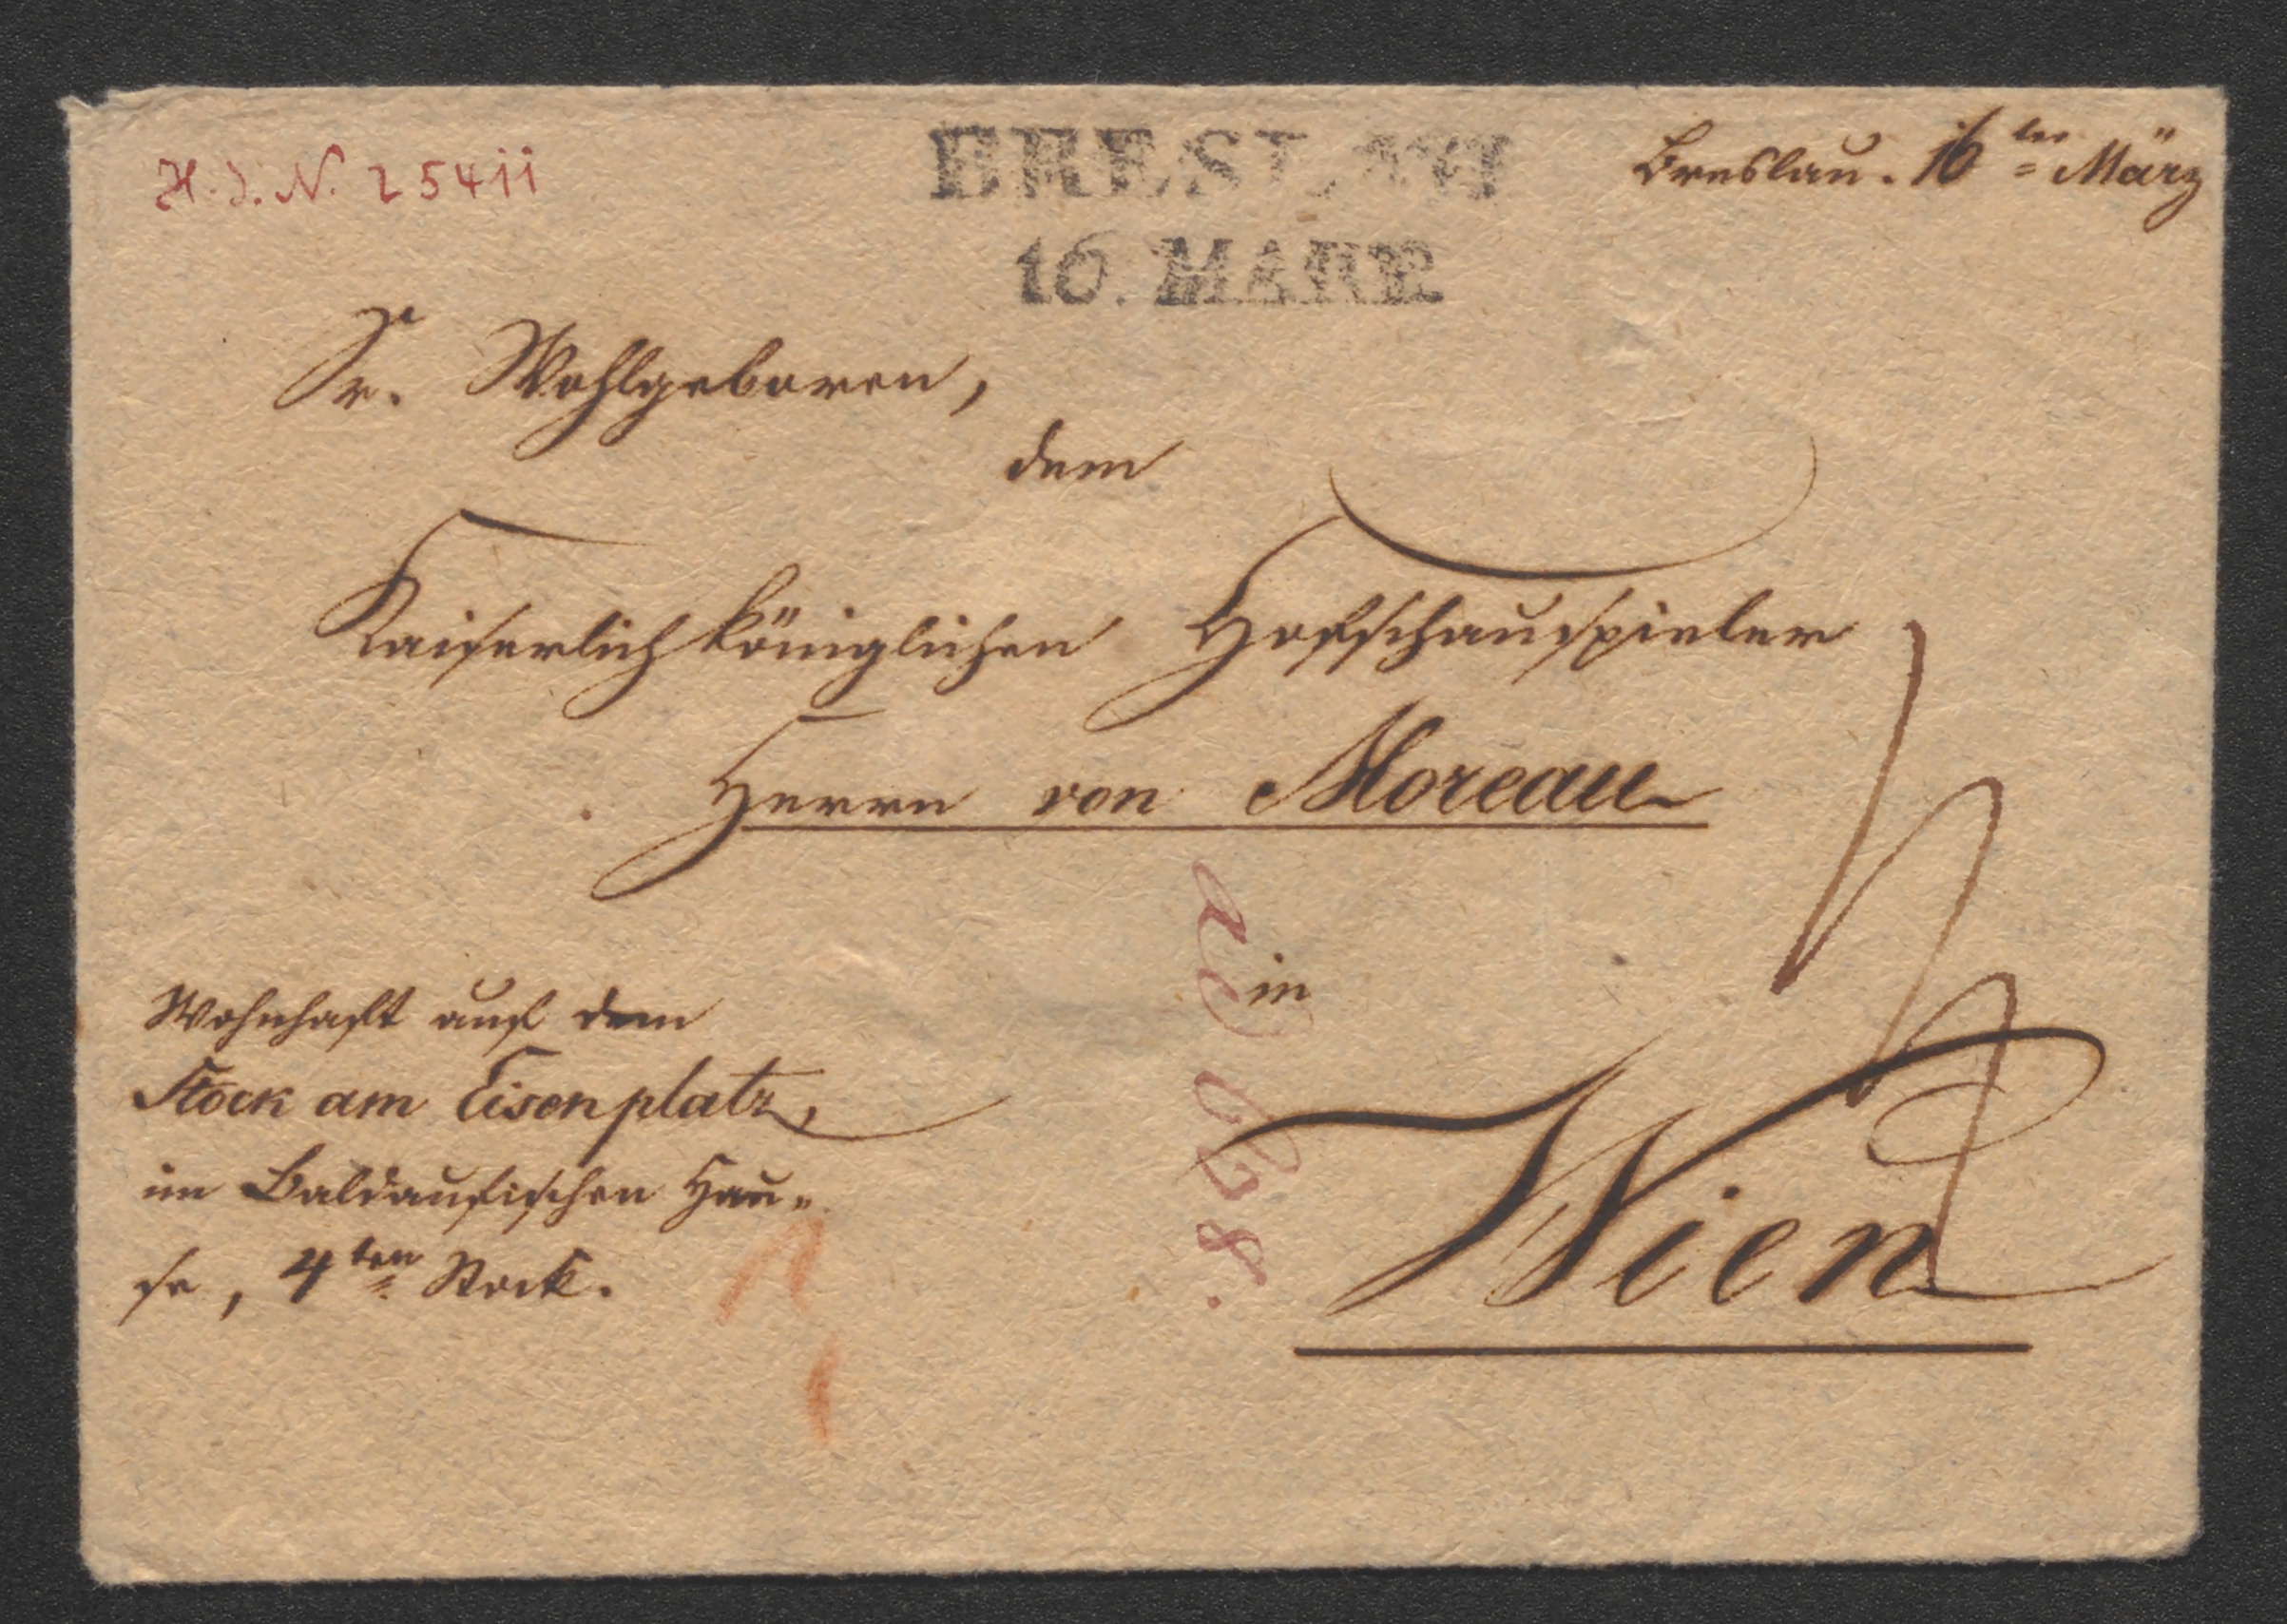 H.I.N. 25411
BRESLAU
16. MAERZ
Breslau. 16ter März
Sr. Wohlgeboren,
dem
Kaiserlich königlichen Hofschauspieler
Herrn von Moreau
in
Wien
Wohnhaft auf dem
Stock am Eisenplatz,
im Baldaufischen Hau-
se, 4ten Stock.